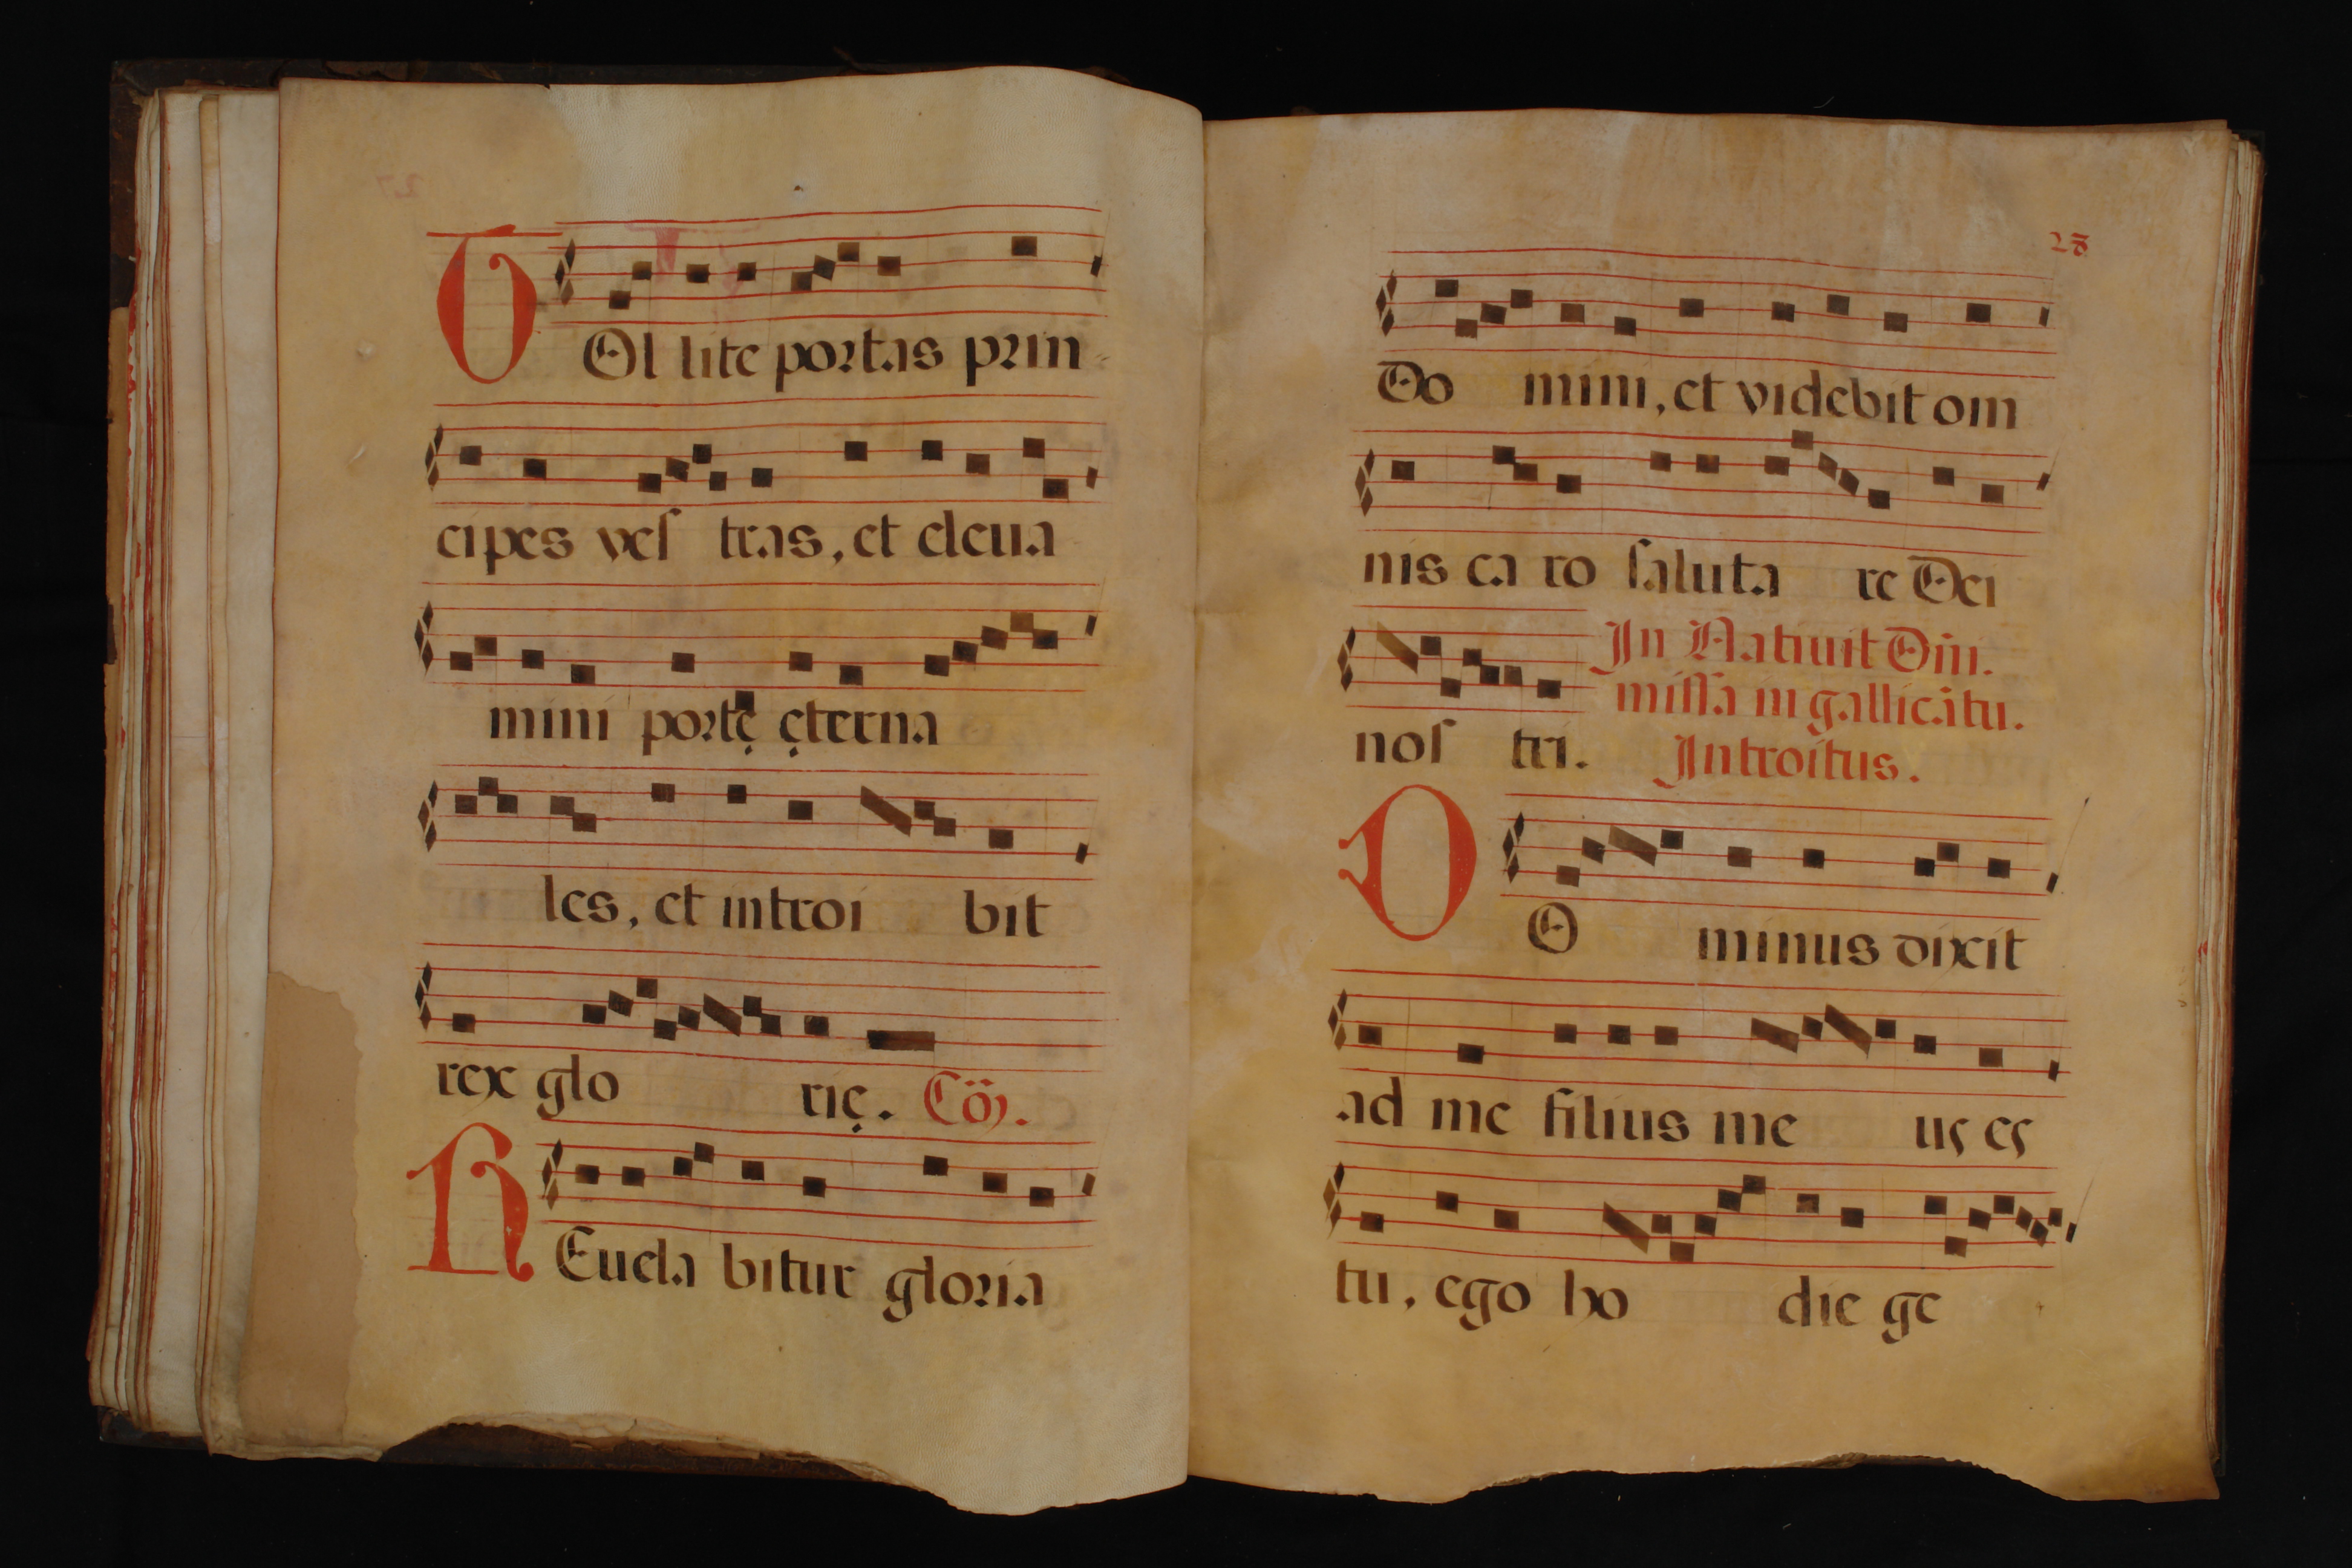 TOl lite portas prin-
cipes ves  tras, et eleua
mini portę ęterna
les, et introi bit
rex glo rię. Cõ.
REuela bitur gloria
28
Do mini, et videbit om
nis ca ro saluta re Dei
nos tri.
In Natiuit Dñi.
missa in gallicãtu.
Introitus.
DO minus dixit
ad me filius me us es
tu, ego ho die ge